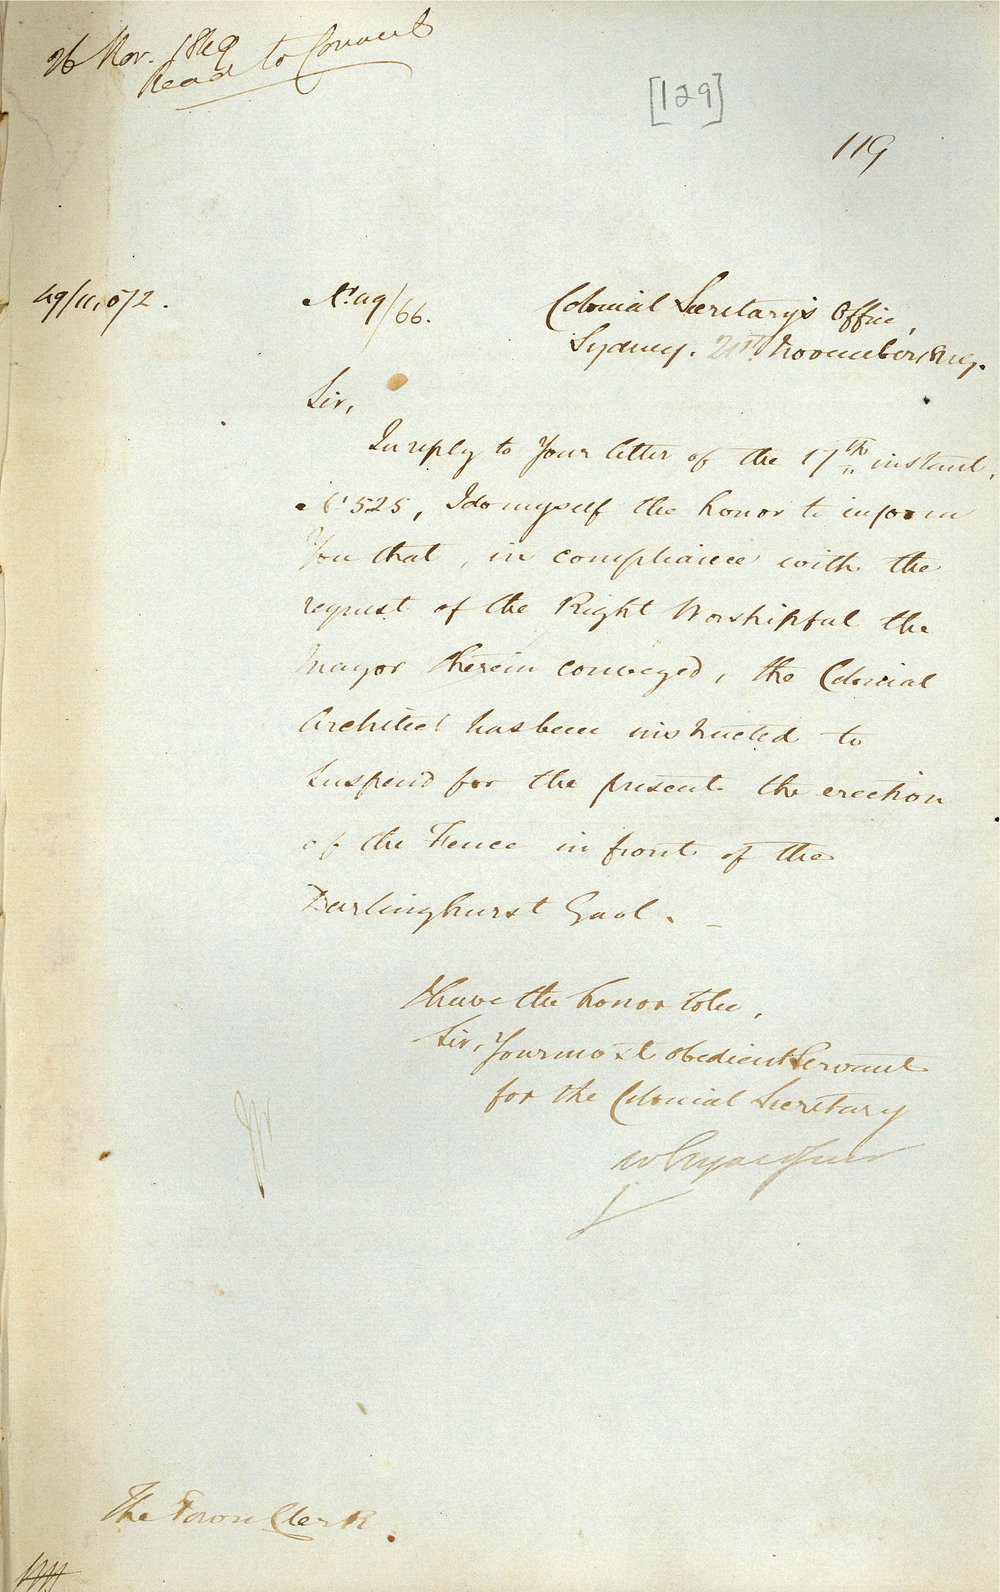 26 Nov. 1849
Read to Council
[129]
119
49/11,072.
No 49/66.
Colonial Secretary's Office,
Sydney. 21st November 1849.
Sir,
In reply to Your letter of the 17th instant,
No 525, I do myself the honor to inform
You that, in compliance with the
request of the Right Worshipful the
Mayor therein conveyed, the Colonial
Architect has been instructed to
suspend for the present the erection
of the Fence in front of the
Darlinghurst Gaol.
I have the honor to be,
Sir, Your most obedient Servant
for the Colonial Secretary
The Town Clerk